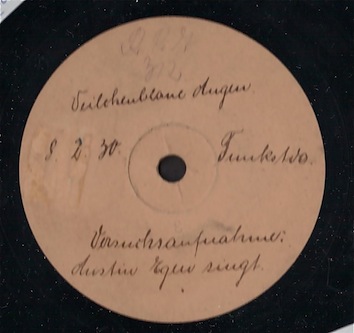 Veilchenblaue Augen.
8. 2. 30. Funkstdo.
Versuchsaufnahme:
Austin Egen singt.